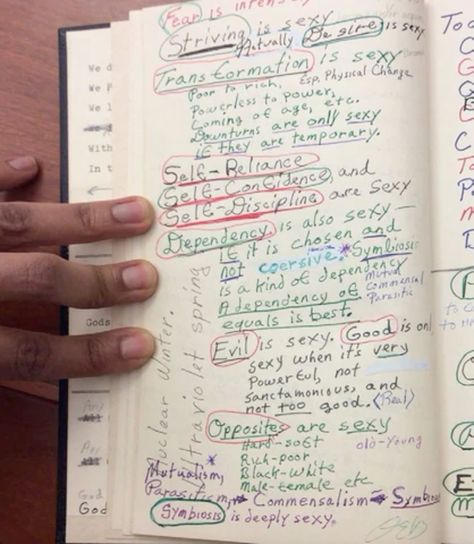 We d
We p
We l
With
In t
Gods
Any
App
God
God
Fear is intensi
Striving is sexy
Mutually Desire is sexy
Transformation is sexy
Poor to rich, Esp. Physical Change
Powerless to power,
Coming of age, etc.
Downturns are only sexy
if they are temporary.
Self-Reliance
Self-Confidence, and
Self-Discipline are Sexy
Dependency is also sexy —
if it is chosen and
not coersive. *Symbiosis
is a kind of dependency
Mutual
Commensal
Parasitic
A dependency of
equals is best.
Nuclear Winter.
Ultraviolet spring
Evil is sexy. Good is onl
sexy when it's very
powerful, not
sanctamonious, and
not too good. <Real>
Opposites are sexy
Hard-soft old-Young
Rich-poor
Black-white
Male-female etc.
*
Mutualism,
Parasitism, Commensalism Symbios
Symbiosis is deeply sexy.